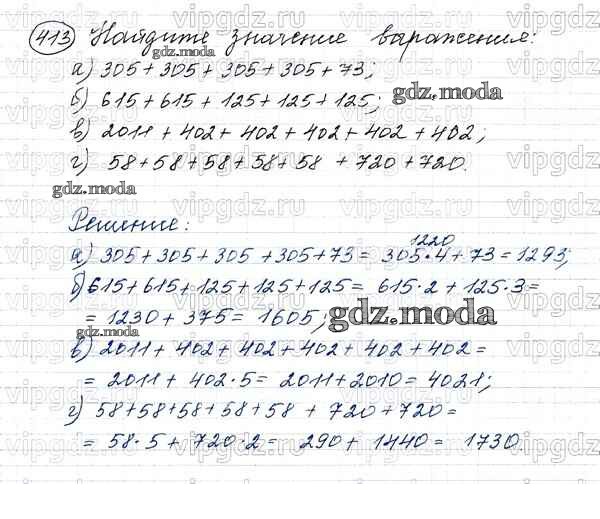 413 Найдите значение выражения:
а) 305 + 305 + 305 + 305 + 73;
б) 615 + 615 + 125 + 125 + 125;
в) 2011 + 402 + 402 + 402 + 402 + 402;
г) 58 + 58 + 58 + 58 + 58 + 720 + 720.
Решение:
1220
а) 305 + 305 + 305 + 305 + 73 = 305·4 + 73 = 1293;
б) 615 + 615 + 125 + 125 + 125 = 615·2 + 125·3 =
= 1230 + 375 = 1605;
в) 2011 + 402 + 402 + 402 + 402 + 402 =
= 2011 + 402·5 = 2011 + 2010 = 4021;
г) 58 + 58 + 58 + 58 + 58 + 720 + 720 =
= 58·5 + 720·2 = 290 + 1440 = 1730.
gdz.moda
gdz.moda
gdz.moda
gdz.moda
gdz.moda
gdz.moda
vipgdz.ru